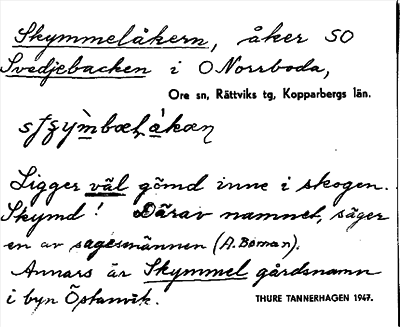 Skymmelåkern, åker SO
Svedjebacken i O Norrboda,
Ore sn, Rättviks tg, Kopparbergs län.
Ligger väl gömd inne i skogen.
Skymd! Därav namnet, säger
en av sagesmännen (A. Boman).
Annars är Skymmel gårdsnamn
i byn Östanvik.
THURE TANNERHAGEN 1947.